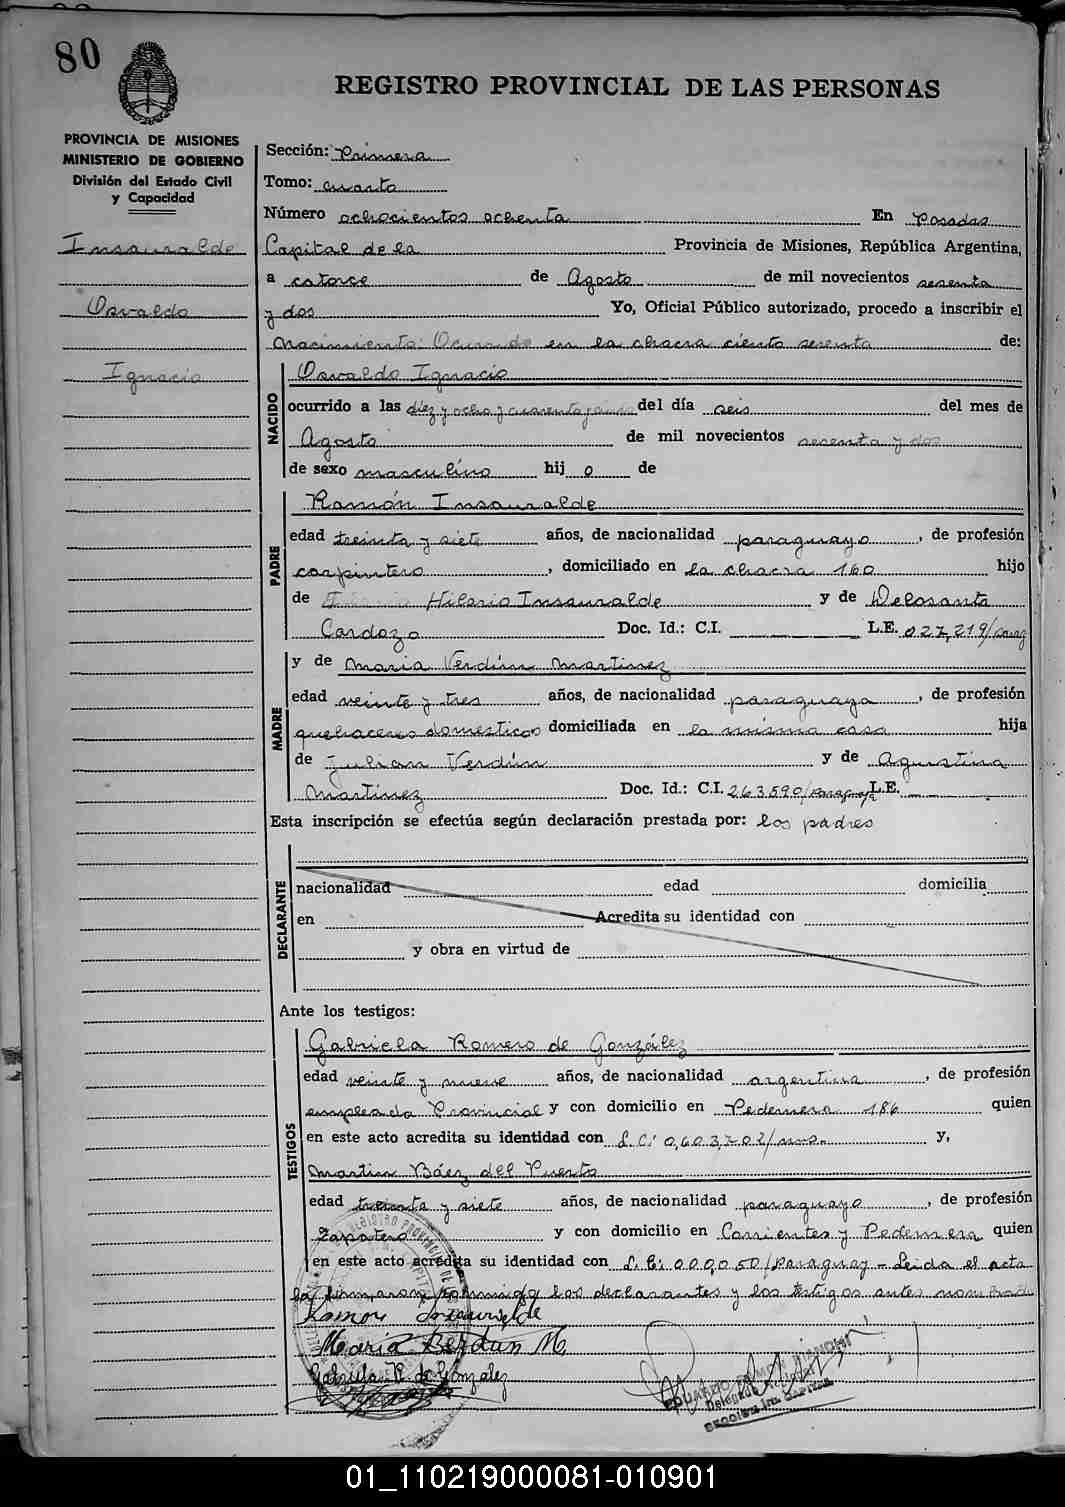 80
REGISTRO PROVINCIAL DE LAS PERSONAS
PROVINCIA DE MISIONES
MINISTERIO DE GOBIERNO
División del Estado Civil
y Capacidad
Insauralde
Osvaldo
Ignacio
Sección: Primera
Tomo: cuarto
Número ochocientos ochenta En Posadas
Capital de la Provincia de Misiones, República Argentina,
a catorce de Agosto de mil novecientos sesenta
y dos Yo, Oficial Público autorizado, procedo a inscribir el
Nacimiento: Ocurrido en la chacra ciento sesenta de:
NACIDO
Osvaldo Ignacio
ocurrido a las diez y ocho y cuarenta del día seis del mes de
Agosto de mil novecientos sesenta y dos
de sexo masculino hij o de
PADRE
Ramón Insauralde
edad treinta y siete años, de nacionalidad paraguayo, de profesión
carpintero, domiciliado en la chacra 160 hijo
de Hilario Insauralde y de Delosanta
Cardozo Doc. Id.: C.I. L.E. 027,219/parag
MADRE
y de Maria Verdún Martinez
edad veinte y tres años, de nacionalidad paraguaya, de profesión
quehaceres domesticos domiciliada en la misma casa hija
de Julian Verdún y de Agustina
Martinez Doc. Id.: C.I. 263590/paraguay L.E.
Esta inscripción se efectúa según declaración prestada por: los padres
DECLARANTE
nacionalidad edad domicilia
en Acredita su identidad con
y obra en virtud de
Ante los testigos:
TESTIGOS
Gabriela Romero de González
edad veinte y nueve años, de nacionalidad argentina, de profesión
empleada Provincial y con domicilio en Pedernera 186 quien
en este acto acredita su identidad con L.C: 0,603,702/ y,
Martin Báez del Puerto
edad treinta y siete años, de nacionalidad paraguayo, de profesión
Zapatero y con domicilio en Corrientes y Pedernera quien
en este acto acredita su identidad con 000,050/Paraguay - Leida el acta
la firmaron conmigo los declarantes y los testigos antes
Ramon Insauralde
Maria Berdun M.
Gabriela R. de Gonzalez
01_110219000081-010901